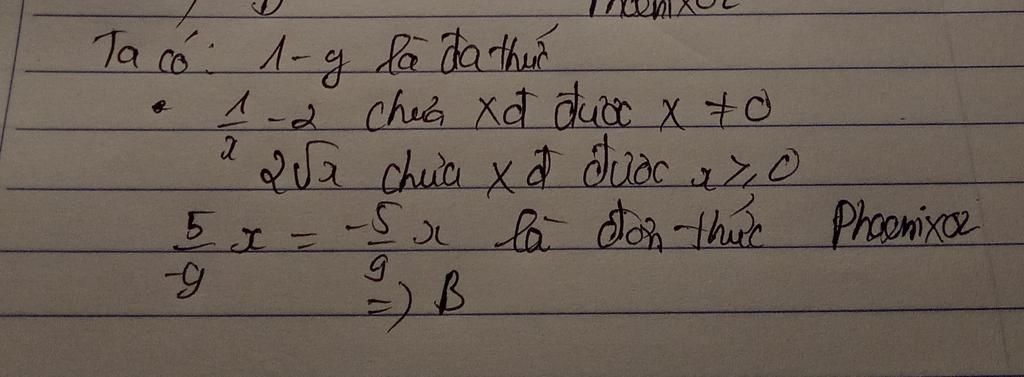 Phoenixoz
Ta có: 1-y là đa thức
• 1/x - 2 chưa xđ được x ≠ 0
2√x chưa xđ được x ≥ 0
5/-9 x = -5/9 x là đơn thức Phoenixoz
=> B